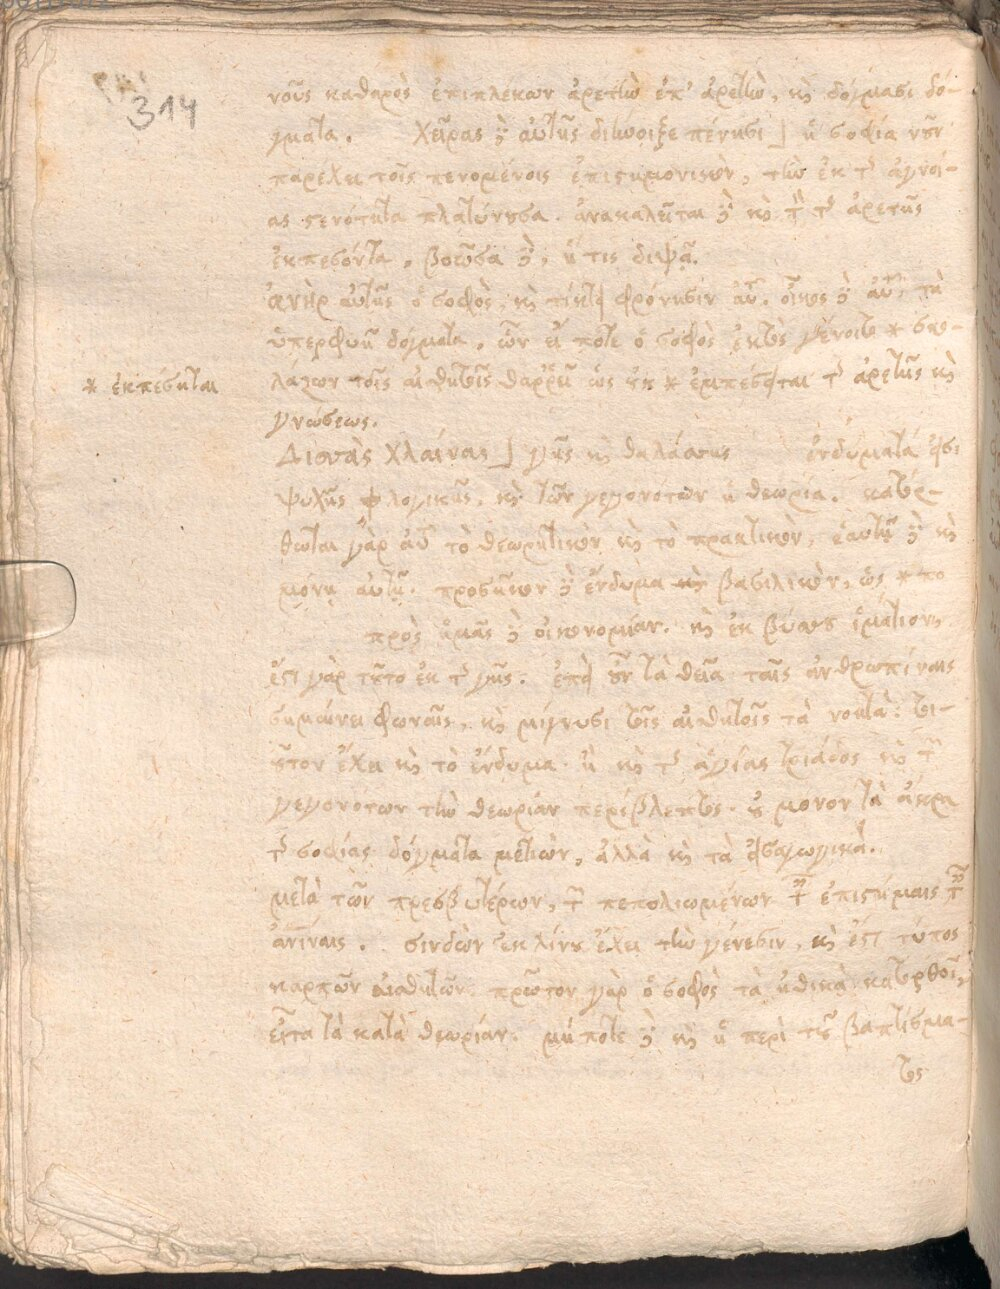 314
νοῦς καθαρὸς ἐπιπλέκων ἀρετὴν ἐπ' ἀρετὴν, καὶ δόγμασι δό-
γματα. Χεῖρας δὲ αὐτῆς διήνοιξε πένησι] ἡ σοφία νῦν
παρέχει τοῖς πενομένοις ἐπιστημονικὸν, τὴν ἐκ τῆς ἀγνοί-
ας στενότητα πλατύνουσα. ἀνακαλεῖται δὲ καὶ τὸν τῆς ἀρετῆς
ἐκπεσόντα, βοῶσα δὲ, εἴ τις διψᾷ.
ἀνὴρ αὐτῆς ὁ σοφὸς, καὶ τίκτει φρόνησιν αὐτῷ. οἶκος δὲ αὐτοῦ τὰ
ὑπερφυῆ δόγματα, ὧν εἴ ποτε ὁ σοφὸς ἐκτὸς γένοιτο *
* ἐκπέσηται
τοῖς αἰσθητοῖς θαρρεῖ ὡς οὐκ * ἐμπέσεται τῆς ἀρετῆς καὶ
γνώσεως.
Δισσὰς χλαίνας] γῆς καὶ θαλάσσης ἐνδύματά εἰσι
ψυχῆς λογικῆς, καὶ τῶν γεγονότων ἡ θεωρία. κατορ-
θωται γὰρ αὐτῇ τὸ θεωρητικὸν καὶ τὸ πρακτικὸν, ἑαυτῇ δὲ καὶ
μόνῃ αὐτῇ. προσῆκον δὲ ἔνδυμα βασιλικὸν, ὡς *
πρὸς ἡμᾶς δὲ οἰκονομίαν. καὶ ἐκ βύσσου ἱμάτιον,
ἔστι γὰρ τοῦτο ἐκ τῆς γῆς. ἐπεὶ οὖν τὰ θεῖα ταῖς ἀνθρωπίναις
σημαίνει φωναῖς, καὶ μίγνυσι τοῖς αἰσθητοῖς τὰ νοητὰ: τοι-
οῦτον ἔχει καὶ τὸ ἔνδυμα. ἢ καὶ τῆς ἁγίας τριάδος καὶ τῶν
γεγονότων τὴν θεωρίαν περίβλεπτος. οὐ μόνον τὰ ἄκρα
τῆς σοφίας δόγματα μετιὼν, ἀλλὰ καὶ τὰ εἰσαγωγικά.
μετὰ τῶν πρεσβυτέρων, τῶν πεπολιωμένων ἐπιστήμαις
σινδὼν ἐκ λίνου ἔχει τὴν γένεσιν, καὶ ἔστι τύπος
καρπῶν αἰσθητῶν. πρῶτον γὰρ ὁ σοφὸς τὰ ἠθικὰ κατορθοῖ,
εἶτα τὰ κατὰ θεωρίαν. μή ποτε δὲ καὶ ἡ περὶ τοῦ βαπτίσμα-
τος